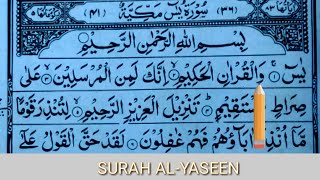 سُوْرَةُ يٰسٓ مَكِّيَّةٌ
(٣٦)
(٤١)
بِسْمِ اللّٰهِ الرَّحْمٰنِ الرَّحِيْمِ
يٰسٓ ۚ وَالْقُرْاٰنِ الْحَكِيْمِ ۙ اِنَّكَ لَمِنَ الْمُرْسَلِيْنَ ۙ عَلٰى
صِرَاطٍ مُّسْتَقِيْمٍ ؕ تَنْزِيْلَ الْعَزِيْزِ الرَّحِيْمِ ۙ لِتُنْذِرَ قَوْمًا
مَّاۤ اُنْذِرَ اٰبَآؤُهُمْ فَهُمْ غٰفِلُوْنَ لَقَدْ حَقَّ الْقَوْلُ عَلٰۤى
SURAH AL-YASEEN